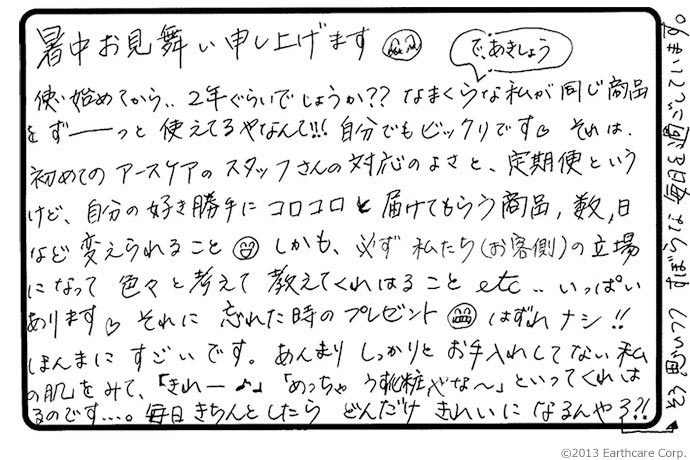 暑中お見舞い申し上げます
で、あきしょう
使い始めてから‥2年ぐらいでしょうか??なまくらな私が同じ商品
をずーーっと使えてるやなんて!!!自分でもビックリです♡それは、
初めてのアースケアのスタッフさんの対応のよさと、定期便という
けど、自分の好き勝手にコロコロと届けてもらう商品,数,日
など変えられることしかも、必ず私たち(お客側)の立場
になって色々と考えて教えてくれはることetc‥いっぱい
あります♡それに忘れた時のプレゼントはずれナシ!!
ほんまにすごいです。あんまりしっかりとお手入れしてない私
の肌をみて、「きれー♪」「めっちゃうす化粧やな〜」といってくれは
るのです…。毎日きちんとしたらどんだけきれいになるんやろ?!
そう思いつつずぼらな毎日を過ごしています。
©2013 Earthcare Corp.